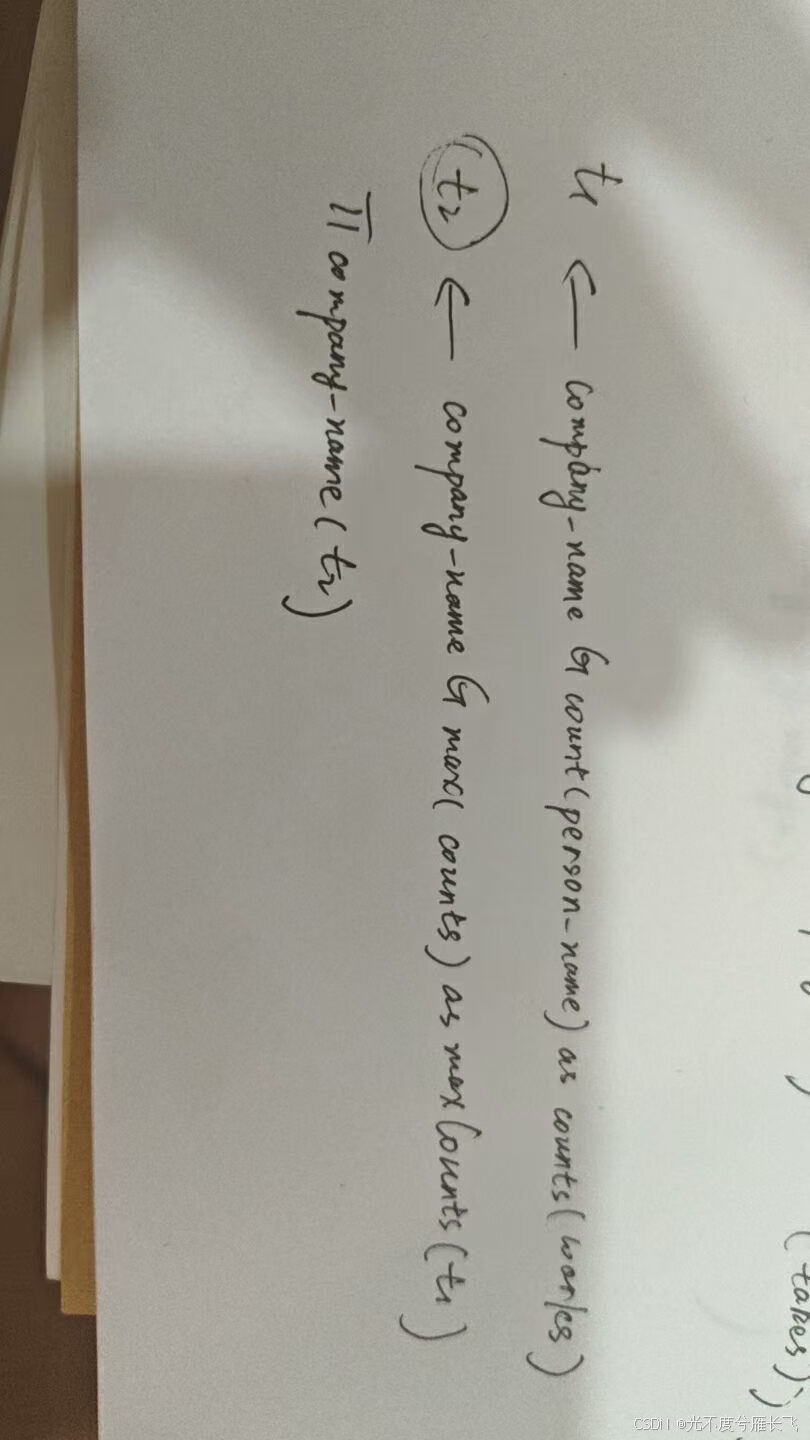 t1 ← company-name G count(person-name) as counts(works)
t2 ← company-name G max(counts) as maxCounts(t1)
Π company-name(t2)
(takes)
CSDN @光不度兮雁长飞